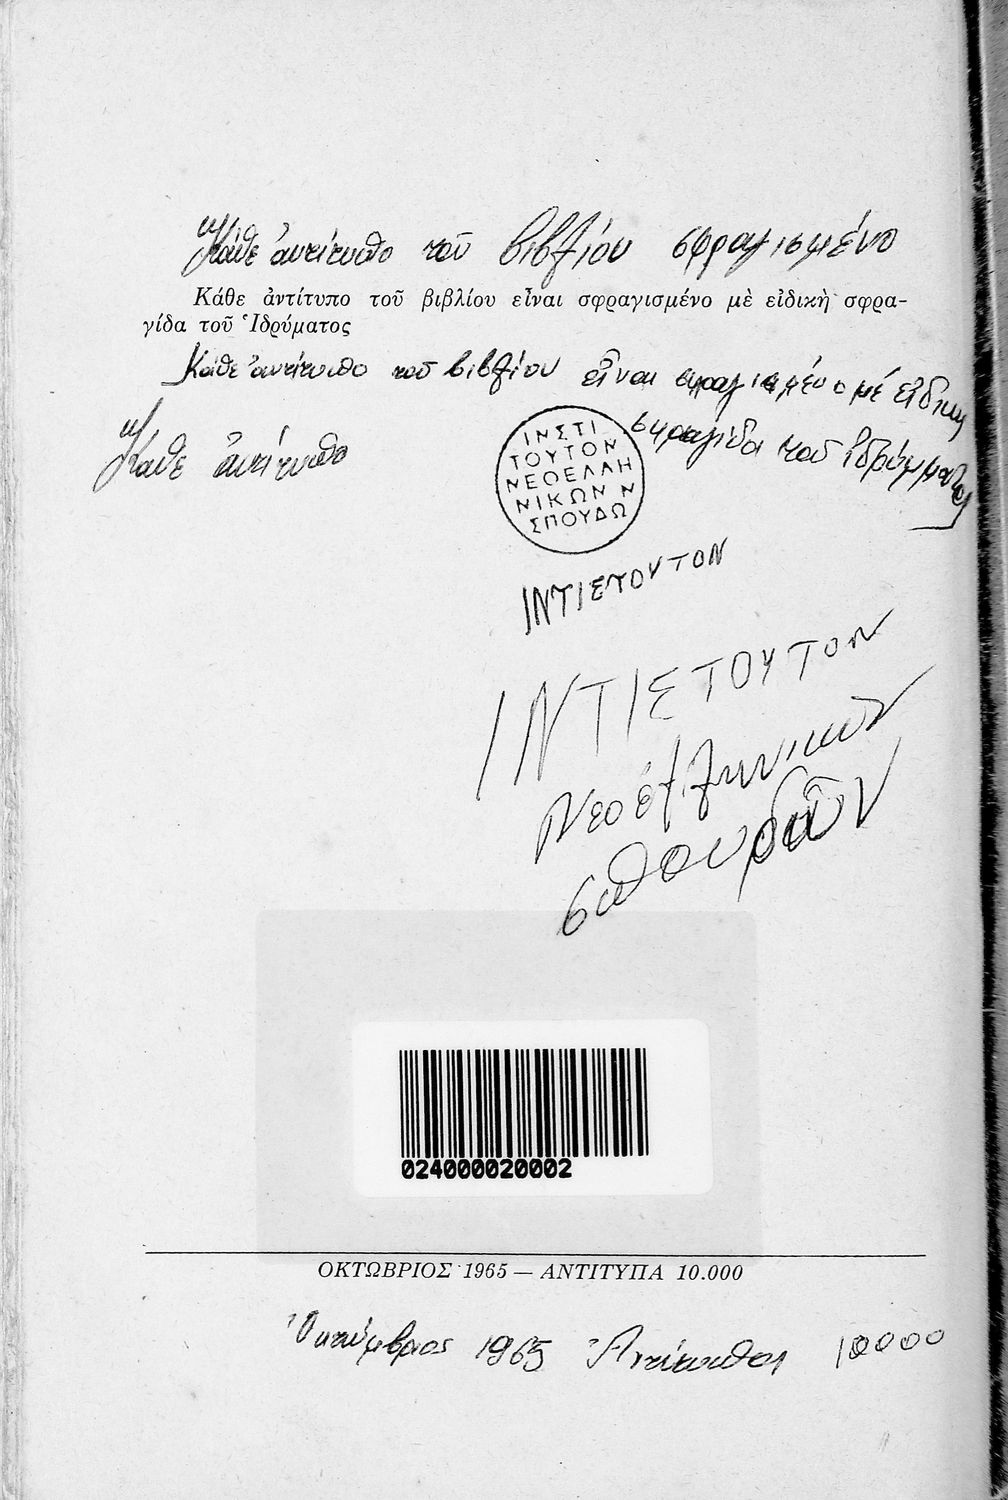 Κάθε ἀντίτυπο τοῦ βιβλίου σφραγισμένο
Κάθε ἀντίτυπο τοῦ βιβλίου εἶναι σφραγισμένο μὲ εἰδικὴ σφρα-
γίδα τοῦ Ἱδρύματος
Κάθε ἀντίτυπο τοῦ βιβλίου εἶναι σφραγισμένο μέ εἰδικη
σφραγίδα τοῦ ἱδρύμματος
Καθε ἀντίτυπο
ΙΝΣΤΙ
ΤΟΥΤΟΝ
ΝΕΟΕΛΛΗ
ΝΙΚΩΝ Ν
ΣΠΟΥΔΩ
ΙΝΤΙΣΤΟΥΤΟΝ
ΙΝΤΙΣΤΟΥΤΟΝ
Νεοέλληνικῶν
σπουδῶν
024000020002
ΟΚΤΩΒΡΙΟΣ 1965 — ΑΝΤΙΤΥΠΑ 10.000
Ὀκτώμβριος 1965 10000